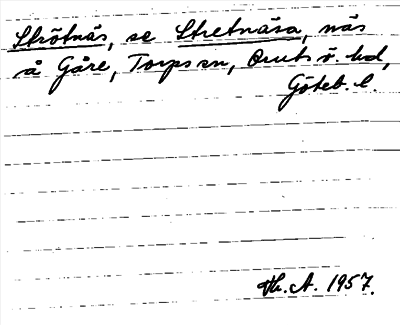 Strötnäs, se Stretnäsa, näs
å Gåre, Torps sn, Orusts v. hd,
Göteb. l.
Vh. A. 1957.